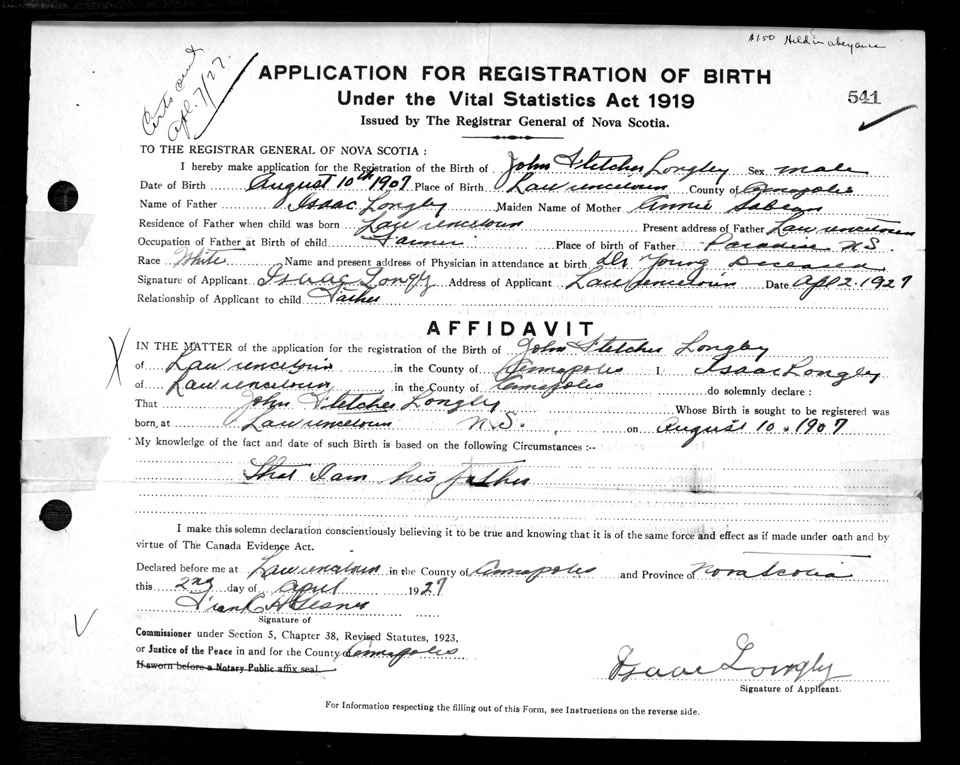 $1.50 Held in abeyance
Certs sent
Apl. 7/27.
APPLICATION FOR REGISTRATION OF BIRTH
Under the Vital Statistics Act 1919
541
Issued by The Registrar General of Nova Scotia.
TO THE REGISTRAR GENERAL OF NOVA SCOTIA :
I hereby make application for the Registration of the Birth of John Fletcher Longley Sex male
Date of Birth August 10th 1907 Place of Birth Lawrencetown County of Annapolis
Name of Father Isaac Longley Maiden Name of Mother Annie Sabean
Residence of Father when child was born Lawrencetown Present address of Father Lawrencetown
Occupation of Father at Birth of child Farmer Place of birth of Father Paradise N.S.
Race White Name and present address of Physician in attendance at birth Dr Young Deceased
Signature of Applicant Isaac Longly Address of Applicant Lawrencetown Date Apl 2. 1927
Relationship of Applicant to child Father
AFFIDAVIT
IN THE MATTER of the application for the registration of the Birth of John Fletcher Longley
of Lawrencetown in the County of Annapolis I Isaac Longley
of Lawrencetown in the County of Annapolis do solemnly declare :
That John Fletcher Longley Whose Birth is sought to be registered was
born, at Lawrencetown N.S. on August 10. 1907
My knowledge of the fact and date of such Birth is based on the following Circumstances :--
That I am his father
I make this solemn declaration conscientiously believing it to be true and knowing that it is of the same force and effect as if made under oath and by
virtue of The Canada Evidence Act.
Declared before me at Lawrencetown in the County of Annapolis and Province of Nova Scotia
this 2nd day of April 1927
Frank H Gesner
Signature of
Commissioner under Section 5, Chapter 38, Revised Statutes, 1923,
or Justice of the Peace in and for the County Annapolis
If sworn before a Notary Public affix seal.
Isaac Longly
Signature of Applicant.
For Information respecting the filling out of this Form, see Instructions on the reverse side.